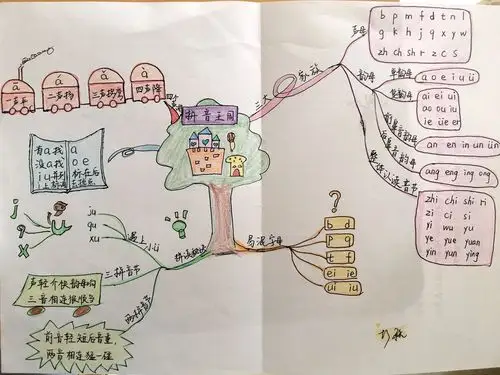 拼音王国
ā
á
ǎ
à
一声平
二声扬
三声拐弯
四声降
四声
有a找a
没a找o e
i u并列标在后
上标声去掉点
j
q
x
ü
ju
qu
xu
遇上小ü
三拼音节
两拼音节
拼读规则
声轻介快韵母响
三音相连很快当
前音轻短后音重
两音相连猛一碰
三大家族
声母
b p m f d t n l
g k h j q x y w
zh ch sh r z c s
韵母
单韵母
a o e i u ü
复韵母
ai ei ui
ao ou iu
ie üe er
前鼻音韵母
an en in un ün
后鼻音韵母
ang eng ing ong
整体认读音节
zhi chi shi ri
zi ci si
yi wu yu
ye yue yuan
yin yun ying
易混字母
?
b d
p q
t f
ei ie
ui iu